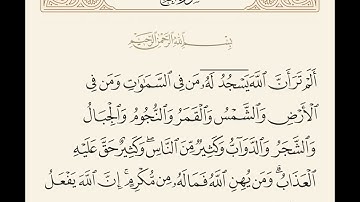 بِسْمِ ٱللَّهِ ٱلرَّحْمَٰنِ ٱلرَّحِيمِ
أَلَمْ تَرَ أَنَّ ٱللَّهَ يَسْجُدُ لَهُۥ مَن فِى ٱلسَّمَٰوَٰتِ وَمَن فِى
ٱلْأَرْضِ وَٱلشَّمْسُ وَٱلْقَمَرُ وَٱلنُّجُومُ وَٱلْجِبَالُ
وَٱلشَّجَرُ وَٱلدَّوَآبُّ وَكَثِيرٌ مِّنَ ٱلنَّاسِ ۖ وَكَثِيرٌ حَقَّ عَلَيْهِ
ٱلْعَذَابُ ۗ وَمَن يُهِنِ ٱللَّهُ فَمَا لَهُۥ مِن مُّكْرِمٍ ۚ إِنَّ ٱللَّهَ يَفْعَلُ